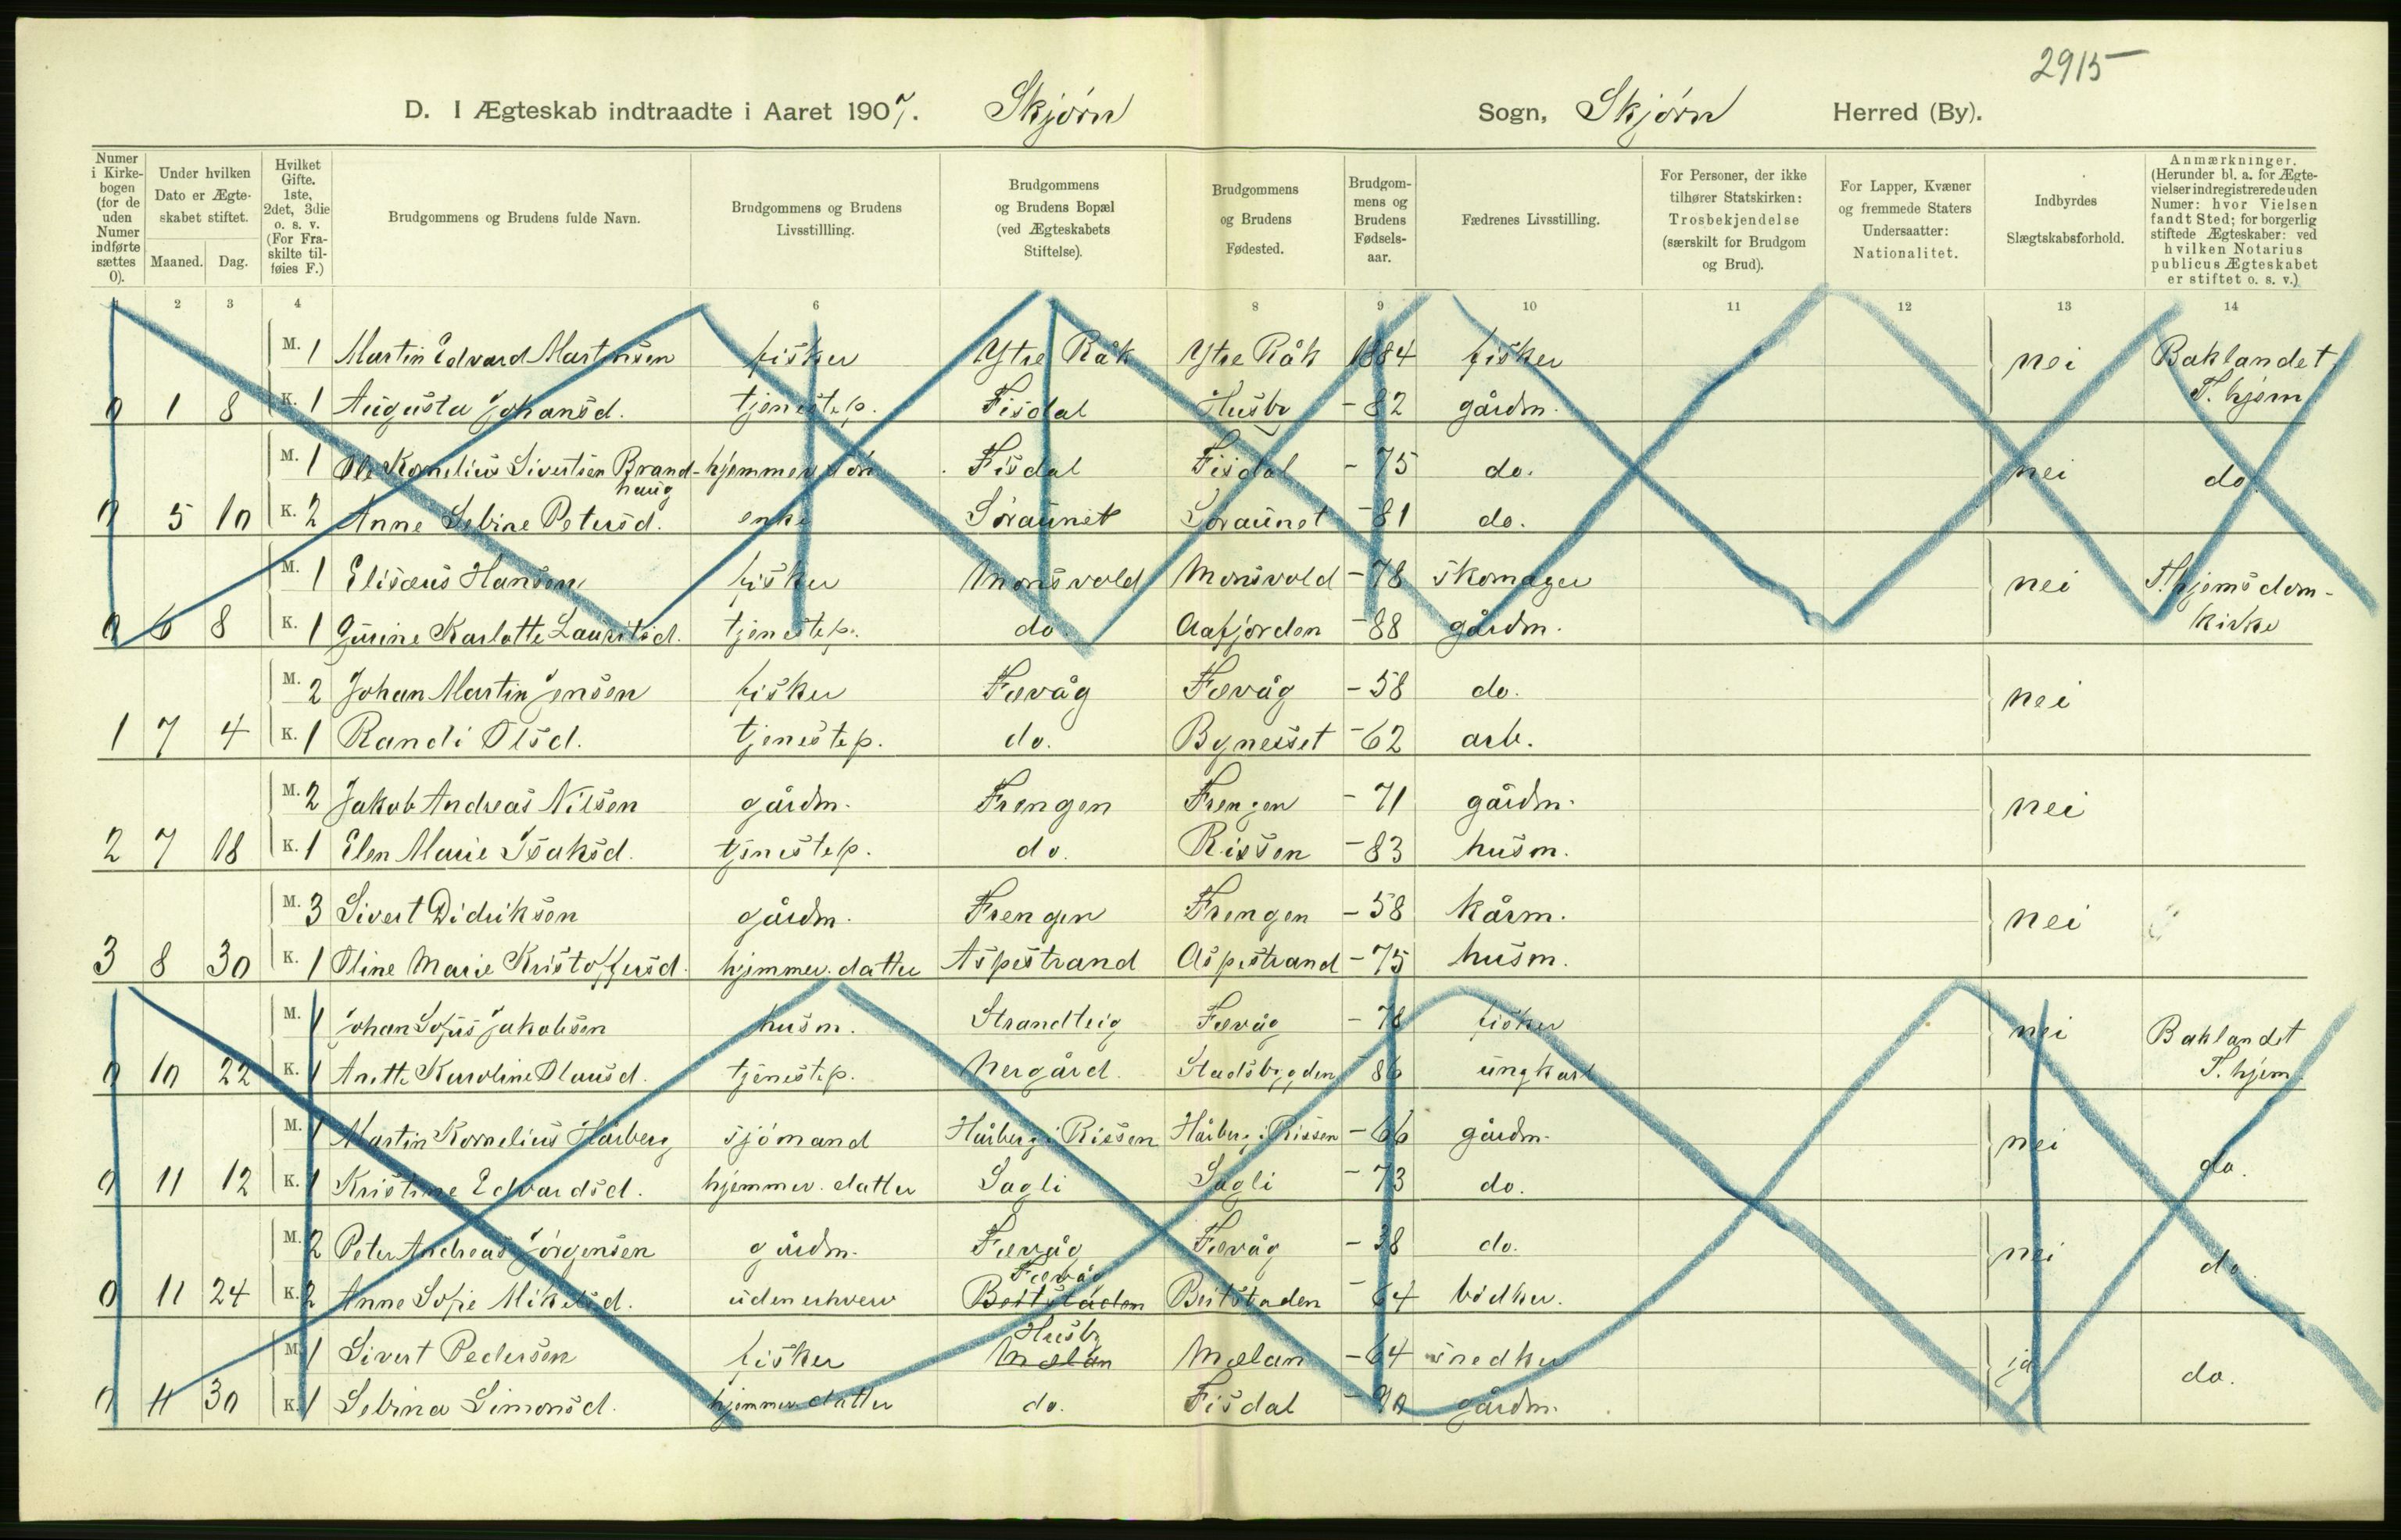 2915
D. I Ægteskab indtraadte i Aaret 1907. Skjørn Sogn, Skjørn Herred (By).
Numer i Kirkebogen (for de uden Numer indførte sættes 0).
Under hvilken Dato er Ægteskabet stiftet.
Maaned. Dag.
Hvilket Gifte. 1ste, 2det, 3die o. s. v. (For Fraskilte tilføies F.)
Brudgommens og Brudens fulde Navn.
Brudgommens og Brudens Livsstillling.
Brudgommens og Brudens Bopæl (ved Ægteskabets Stiftelse).
Brudgommens og Brudens Fødested.
Brudgommens og Brudens Fødselsaar.
Fædrenes Livsstilling.
For Personer, der ikke tilhører Statskirken: Trosbekjendelse (særskilt for Brudgom og Brud).
For Lapper, Kvæner og fremmede Staters Undersaatter: Nationalitet.
Indbyrdes Slægtskabsforhold.
Anmærkninger. (Herunder bl. a. for Ægtevielser indregistrerede uden Numer: hvor Vielsen fandt Sted; for borgerlig stiftede Ægteskaber: ved hvilken Notarius publicus Ægteskabet er stiftet o. s. v.)
2 3 4 6 8 9 10 11 12 13 14
M. 1 Martin Edvard Martinsen fisker Ytre Råk Ytre Råk 1884 fisker nei Baklandet,
0 1 8 K. 1 Augusta Johansd. tjenestep. Fisdal Husby - 82 gårdm. T.hjem
M. 1 Ole Kornelius Sivertsen Brand- hjemmev. søn Fisdal Fisdal - 75 do. nei do.
haug
0 5 10 K. 2 Anne Sebine Petersd. enke Søraunet Søraunet - 81 do.
M. 1 Elisæus Hansen fisker Monsvold Monsvold - 78 skomager nei T.hjems dom-
0 6 8 K. 1 Gurine Karlotte Lauritsd. tjenestep. do. Aafjorden - 88 gårdm. kirke
M. 2 Johan Martin Jensen fisker Fævåg Fævåg - 58 do. nei
1 7 4 K. 1 Randi Olsd. tjenestep. do. Bynesset - 62 arb.
M. 2 Jakob Andreas Nilsen gårdm. Frengen Frengen - 71 gårdm. nei
2 7 18 K. 1 Elen Marie Isaksd. tjenestep. do. Rissen - 83 husm.
M. 3 Sivert Didriksen gårdm. Frengen Frengen - 58 kårm. nei
3 8 30 K. 1 Oline Marie Kristoffersd. hjemmev. datter Aspestrand Aspestrand - 75 husm.
M. 1 Johan Sofus Jakobsen husm. Strandteig Fævåg - 78 fisker nei Baklandet
0 10 22 K. 1 Anette Karoline Olausd. tjenestep. Nergård Stadsbygden 86 ungkarl T.hjem.
M. 1 Martin Kornelius Hårberg sjømand Hårberg i Rissen Hårberg i Rissen - 66 gårdm. nei
0 11 12 K. 1 Kristine Edvardsd. hjemmev. datter Sagli Sagli - 73 do. do.
M. 2 Peter Andreas Jörgensen gårdm. Fævåg Fævåg - 38 do. nei
Fævåg
0 11 24 K. 2 Anne Sofie Mikelsd. uden erhverv Beitstaden Beitstaden - 64 bødker. do.
Husby
M. 1 Sivert Pedersen fisker Mælan Mælan - 64 snedker ja
0 11 30 K. 1 Sebina Simonsd. hjemmev. datter do. Fisdal - 90 gårdm. do.